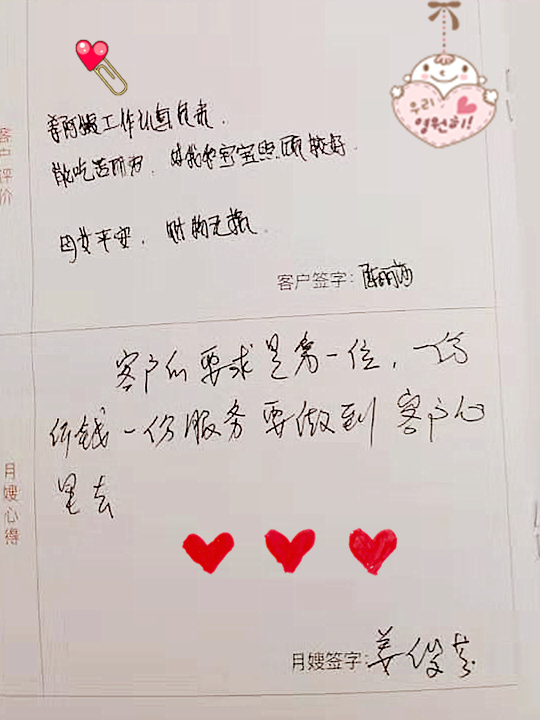 우리
영원히!
客户评价
姜阿姨工作认真负责.
能吃苦耐劳.对我和宝宝照顾较好.
母女平安,财物无损.
客户签字:陈丽莎
客户的要求是第一位,一份
价钱一份服务要做到客户心
里去
月嫂心得
月嫂签字:姜俊芬